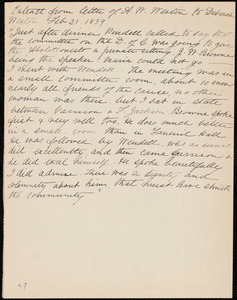 Extract from letter of A. W. Weston to Deborah
Weston Feb. 21 1839
Just after dinner Wendell called to say that
the committee on the D. of C. was going to give
the Abolitionists a hearing J. W. Browne
being the speaker. Maria could not go
I went with Wendell. The meeting was in
a small committee room, about 40 men
nearly all friends of the cause, no other
woman was there, but I sat in state
between Garrison & F. Jackson. Browne spoke
first & very well. He does much better
in a small room than in Faneuil Hall
He was followed by Wendell, who as usual
did excellently, and then came Garrison &
he did excel himself. He spoke beautifully
I did admire. There was a dignity and
solemnity about him that must have struck
the community"